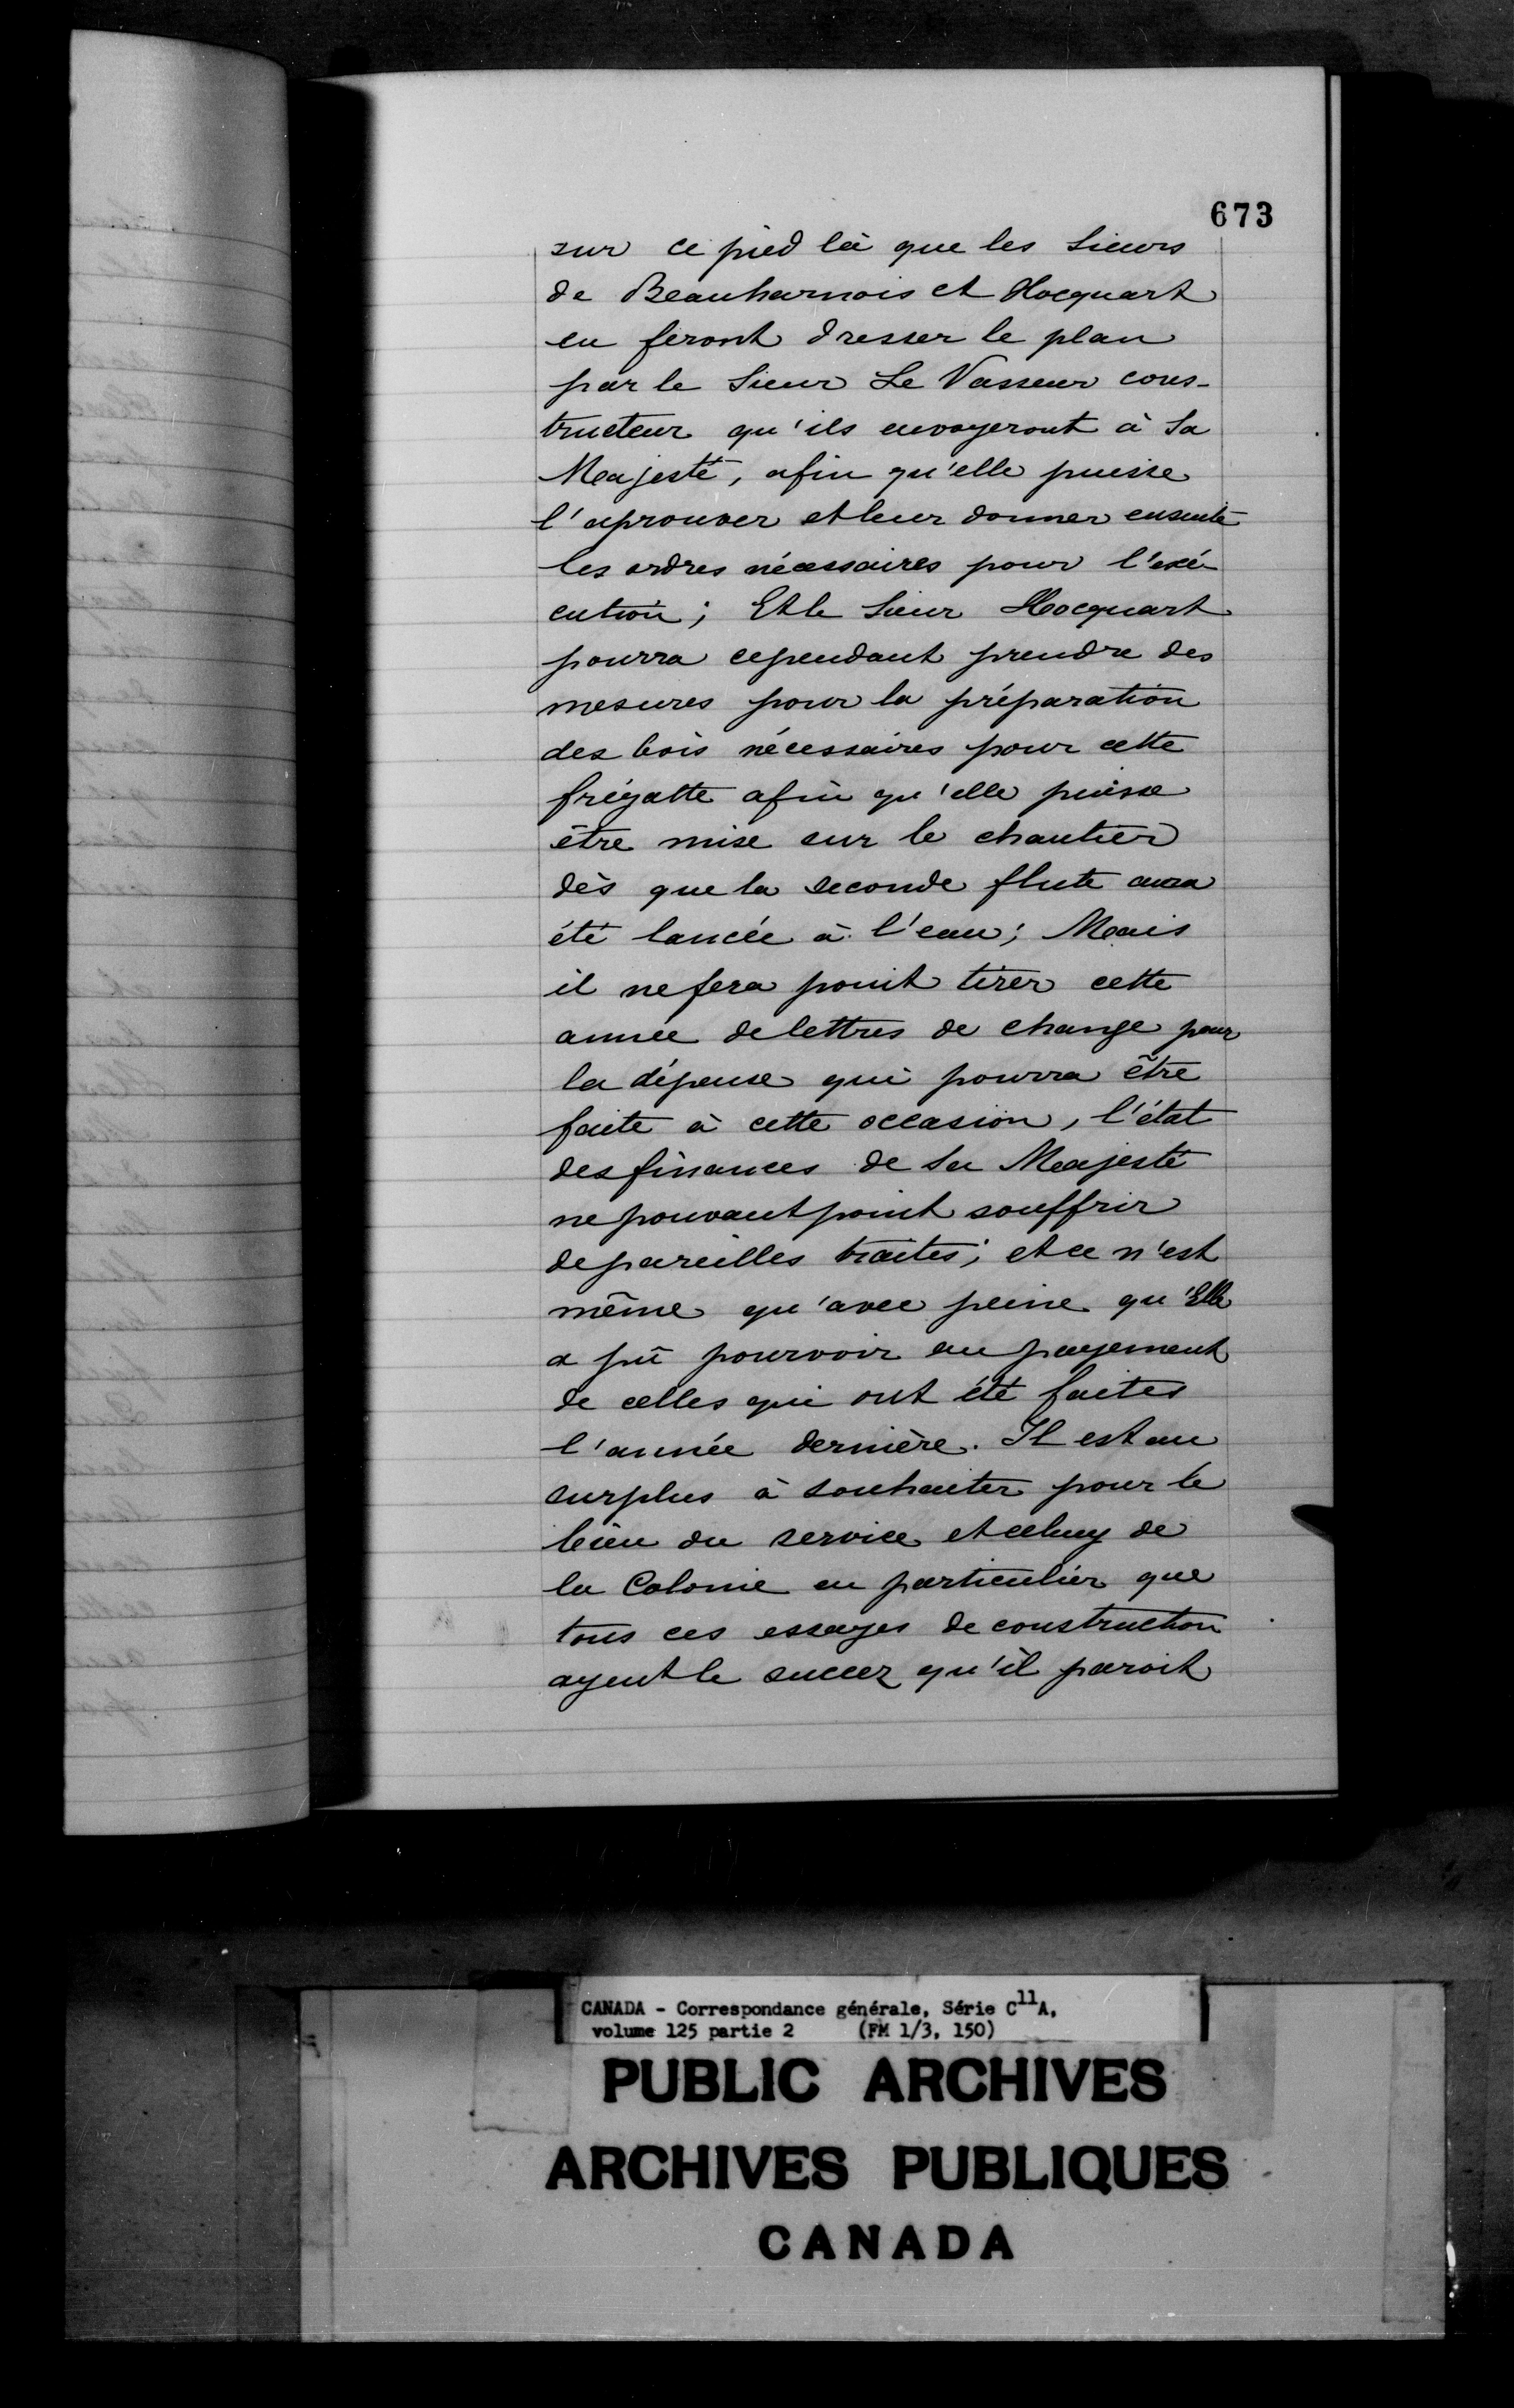 673
sur ce pied là que les Sieurs
de Beauharnois et Hocquart
en feront dresser le plan
par le Sieur Le Vasseur cons-
tructeur qu'ils envoyeront à Sa
Majesté, afin qu'elle puisse
l'aprouver et leur donner ensuite
les ordres nécessaires pour l'exé-
cution; Et le Sieur Hocquart
pourra cependant prendre des
mesures pour la préparation
des bois nécessaires pour cette
frégatte afin qu'elle puisse
être mise sur le chantier
dès que la seconde flute aura
été lancée à l'eau; Mais
il ne fera point tirer cette
année de lettres de change pour
la dépense qui pourra être
faite à cette occasion, l'état
des finances de Sa Majesté
ne pouvant point souffrir
de pareilles traites; et ce n'est
même qu'avec peine qu'Elle
a pû pourvoir au payement
de celles qui ont été faites
l'année dernière. Il est au
surplus à souhaiter pour le
bien du service et celuy de
la Colonie en particulier que
tous ces essayes de construction
ayent le succez qu'il paroit
CANADA - Correspondance générale, Série C11A,
volume 125 partie 2 (FM 1/3, 150)
PUBLIC ARCHIVES
ARCHIVES PUBLIQUES
CANADA